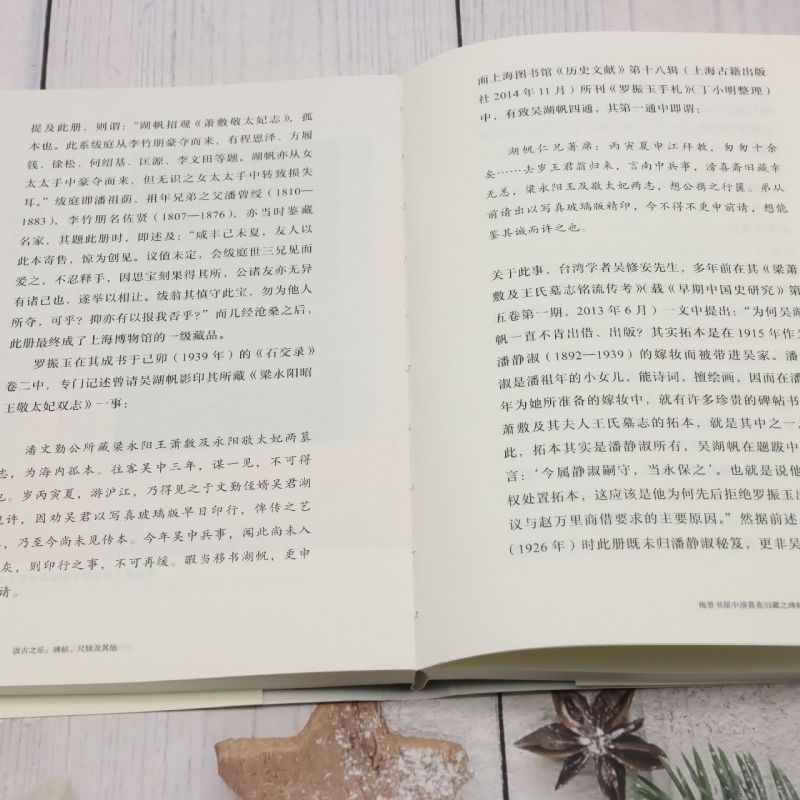 提及此册，则谓：“湖帆招观《萧敷敬太妃志》，孤
本也。此系绂庭从李竹朋豪夺而来，有程恩泽、方履
篯、徐松、何绍基、匡源、李文田等题。湖帆亦从女
太太手中豪夺而来，但无识之女太太手中转致损失
耳。”绂庭即潘祖荫、祖年兄弟之父潘曾绶（1810—
1883），李竹朋名佐贤（1807—1876），亦当时鉴藏
名家，其题此册时，即述及：“咸丰己未夏，友人以
此本寄售，惊为创见。议值未定，会绂庭世三兄见而
爱之，不忍释手，因思宝刻果得其所，公诸友亦无异
有诸己也，遂举以相让。绂翁其慎守此宝，勿为他人
所夺，可乎？抑亦有以报我否乎？”而几经沧桑之后，
此册最终成了上海博物馆的一级藏品。
罗振玉在其成书于己卯（1939年）的《石交录》
卷二中，专门记述曾请吴湖帆影印其所藏《梁永阳昭
王敬太妃双志》一事：
潘文勤公所藏梁永阳王萧敷及永阳敬太妃两墓
志，为海内孤本。往客吴中三年，谋一见，不可得
也。岁丙寅夏，游沪江，乃得见之于文勤侄婿吴君湖
许，因劝吴君以写真玻璃版早日印行，俾传之艺
，乃至今尚未见传本。今年吴中兵事，闻此尚未入
灰，则印行之事，不可再缓。暇当移书湖帆，更申
请。
汲古之乐：碑帖、尺牍及其他
面上海图书馆《历史文献》第十八辑（上海古籍出版
社2014年11月）所刊《罗振玉手札》（丁小明整理）
中，有致吴湖帆四通，其第一通中即谓：
湖帆仁兄著席：丙寅夏申江拜教，匆匆十余
矣……去岁王君翁归来，言南中兵事，滂喜斋旧藏幸
无恙，梁永阳王及敬太妃两志，想公携之行箧。弟从
前请出以写真玻璃版精印，今不得不更申前请，想能
鉴其诚而许之也。
关于此事，台湾学者吴修安先生，多年前在其《梁萧
敷及王氏墓志铭流传考》（载《早期中国史研究》第
五卷第一期，2013年6月）一文中提出：“为何吴湖
帆一直不肯出借、出版？其实拓本是在1915年作
潘静淑（1892—1939）的嫁妆而被带进吴家。潘
淑是潘祖年的小女儿，能诗词，擅绘画，因而在潘
年为她所准备的嫁妆中，就有许多珍贵的碑帖书
萧敷及其夫人王氏墓志的拓本，就是其中之一
此，拓本其实是潘静淑所有，吴湖帆在题跋中
言：‘今属静淑嗣守，当永保之’。也就是说他
权处置拓本，这应该是他为何先后拒绝罗振玉出
议与赵万里商借要求的主要原因。”然据前述
（1926年）时此册既未归潘静淑秘笈，更非吴
梅景书屋中滂喜斋旧藏之碑帖